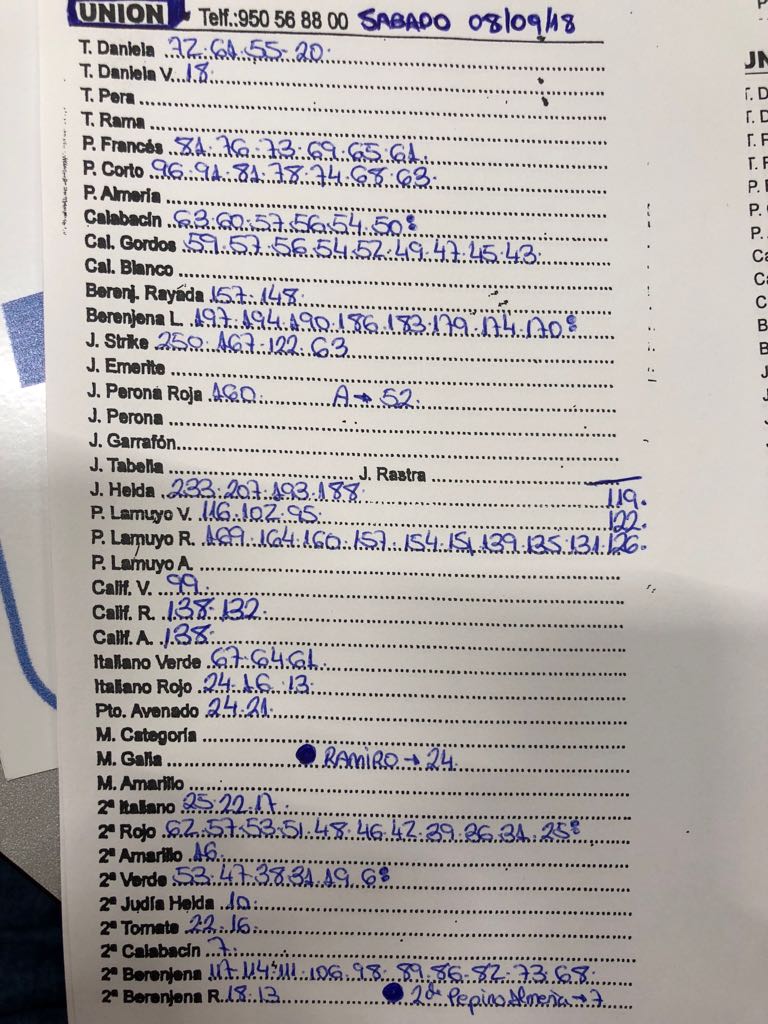 UNION Telf.:950 56 88 00 SABADO 08/09/18
T. Daniela 72.61.55.20.
T. Daniela V. 18.
T. Pera
T. Rama
P. Francés 81.76.73.69.65.61.
P. Corto 96.91.81.78.74.68.63.
P. Almeria
Calabacín 63.60.57.56.54.50
Cal. Gordos 59.57.56.54.52.49.47.45.43.
Cal. Blanco
Berenj. Rayada 157.148.
Berenjena L. 197.194.190.186.183.179.174.170
J. Strike 250.167.122.63
J. Emerite
J. Perona Roja 160. A→52.
J. Perona
J. Garrafón
J. Tabella J. Rastra
J. Helda 233.207.193.188. 119.
P. Lamuyo V. 116.102.95. 122.
P. Lamuyo R. 169.164.160.157.154.151.139.135.131.126.
P. Lamuyo A.
Calif. V. 99
Calif. R. 138.132.
Calif. A. 138.
Italiano Verde 67.64.61.
Italiano Rojo 24.16.13.
Pto. Avenado 24.21.
M. Categoría
M. Galia RAMIRO→24.
M. Amarillo
2ª Italiano 25.22.17.
2ª Rojo 62.57.53.51.48.46.42.39.36.31.25
2ª Amarillo 16.
2ª Verde 53.47.38.31.19.6
2ª Judía Helda 10.
2ª Tomate 22.16.
2ª Calabacín 7.
2ª Berenjena 117.114.111.106.98.89.86.82.73.68.
2ª Berenjena R. 18.13. 2ª Pepino Almeria→7